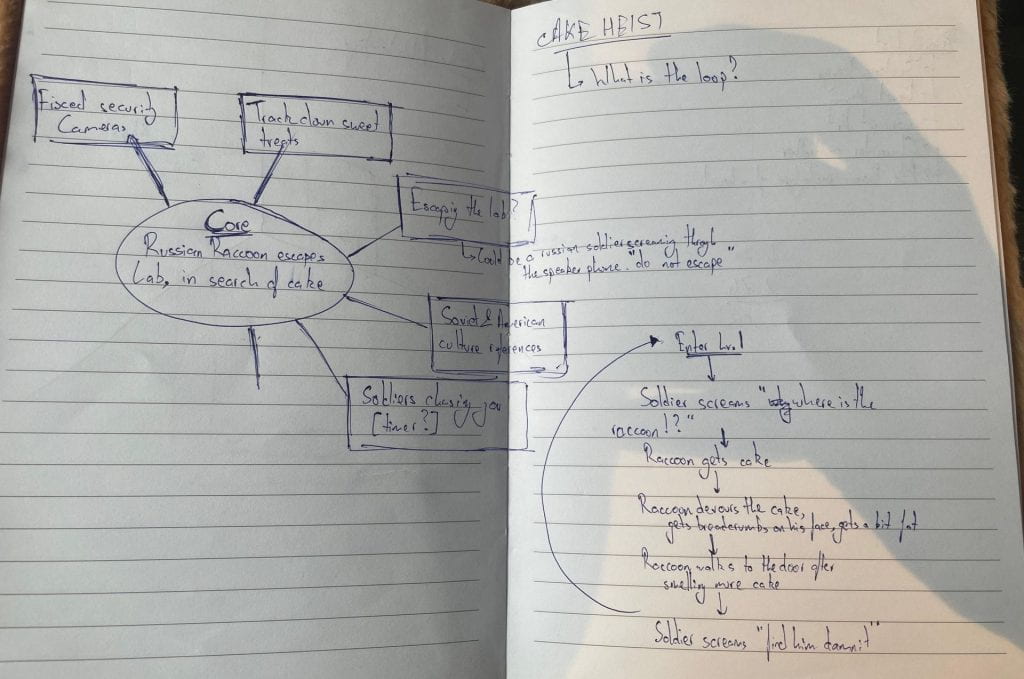 Fixed security
Cameras
Track down sweet
treats
Core
Russian Raccoon escapes
Lab, in search of cake
Escapig the lab?
↳ Could be a russian soldier screaming through
the speaker phone. "do not escape"
Soviet & American
culture references
Soldiers chasing you
[timer?]
CAKE HEIST
↳ What is the loop?
Enter Lvl
Soldier screams "where is the
raccoon!?"
Raccoon gets cake
Raccoon devours the cake,
gets breadcrumbs on his face, gets a bit fat
Raccoon walks to the door after
smelling more cake
Soldier screams "find him damnit"